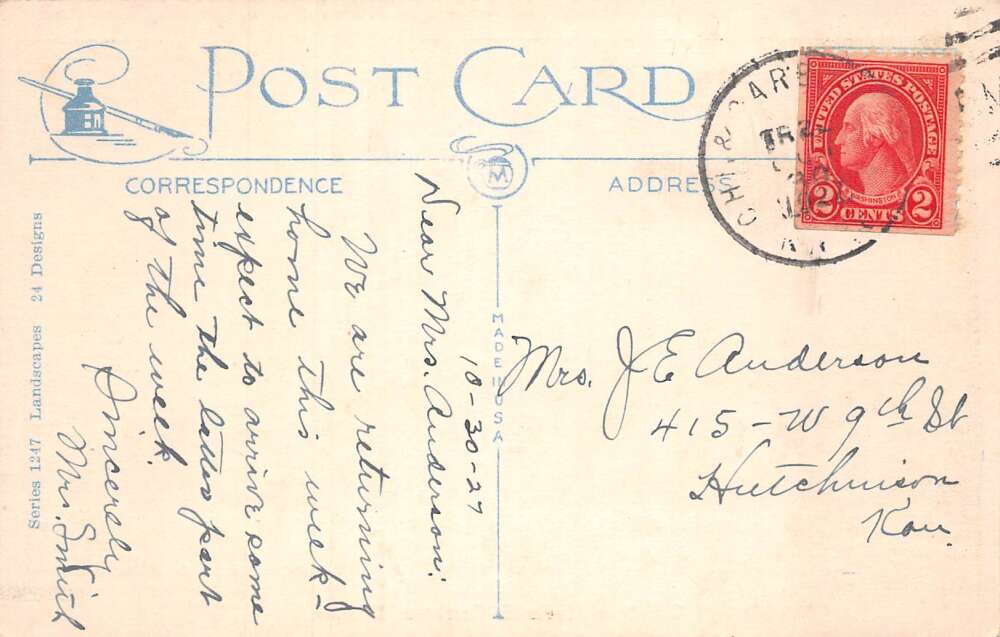 POST CARD
CORRESPONDENCE
ADDRESS
M
MADE IN USA
Series 1247 Landscapes 24 Designs
10-30-27
Dear Mrs. Anderson:
We are returning
home this week-
expect to arrive some
time the latter part
of the week.
Sincerely
Mrs. Smith
UNITED STATES POSTAGE
WASHINGTON
2 CENTS 2
CHI. &
Mrs. J E Anderson
415-W 9th St
Hutchinson
Kan